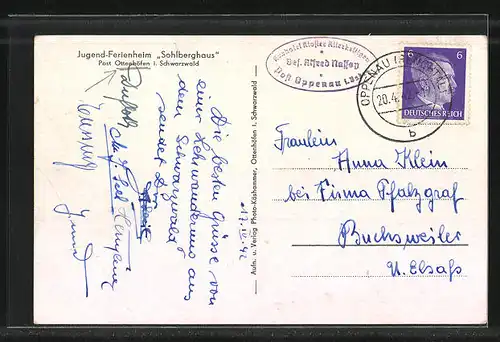 Jugend-Ferienheim „Sohlberghaus"
Post Ottenhöfen i. Schwarzwald
Die besten Grüsse von
einer Lehrwanderung aus
dem Schwarzwald
sendet Dir
17. IV. 42
Aufn. u. Verlag Photo Käshammer, Ottenhöfen i. Schwarzwald
Kloster Allerheiligen
Bes. Alfred
Post Oppenau
OPPENAU
20.4.
b
6 6
DEUTSCHES REICH
Fräulein
Anna Klein
bei Firma Pfalzgraf
Buchsweiler
U. Elsaß